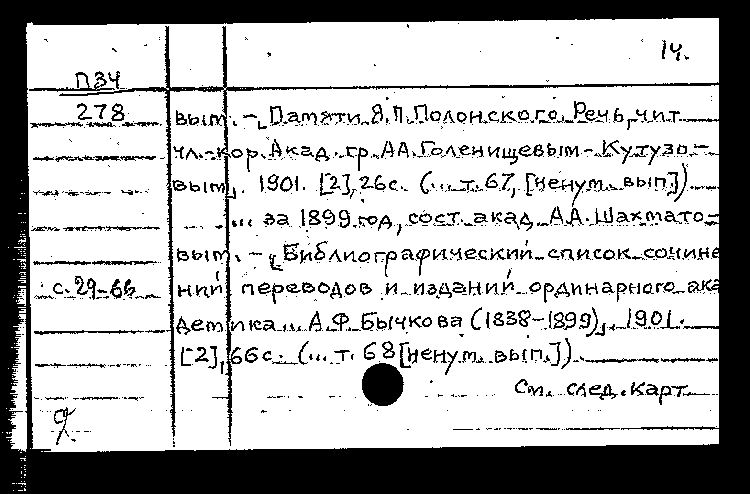 14.
П34
278
вым. – „Памяти Я.П. Полонского. Речь, чит
чл.-кор. Акад. гр. А.А. Голенищевым-Кутузо-
вым„. 1901. [2], 26с. (... т. 67, [ненум. вып.])
... за 1899 год, сост. акад. А.А. Шахмато-
вым. – „Библиографический список сочине
с. 29-66
ний переводов и изданий ординарного ака
демика... А.Ф. Бычкова (1838-1899)„. 1901.
[2], 66с. (... т. 68 [ненум. вып.])
См. след. карт